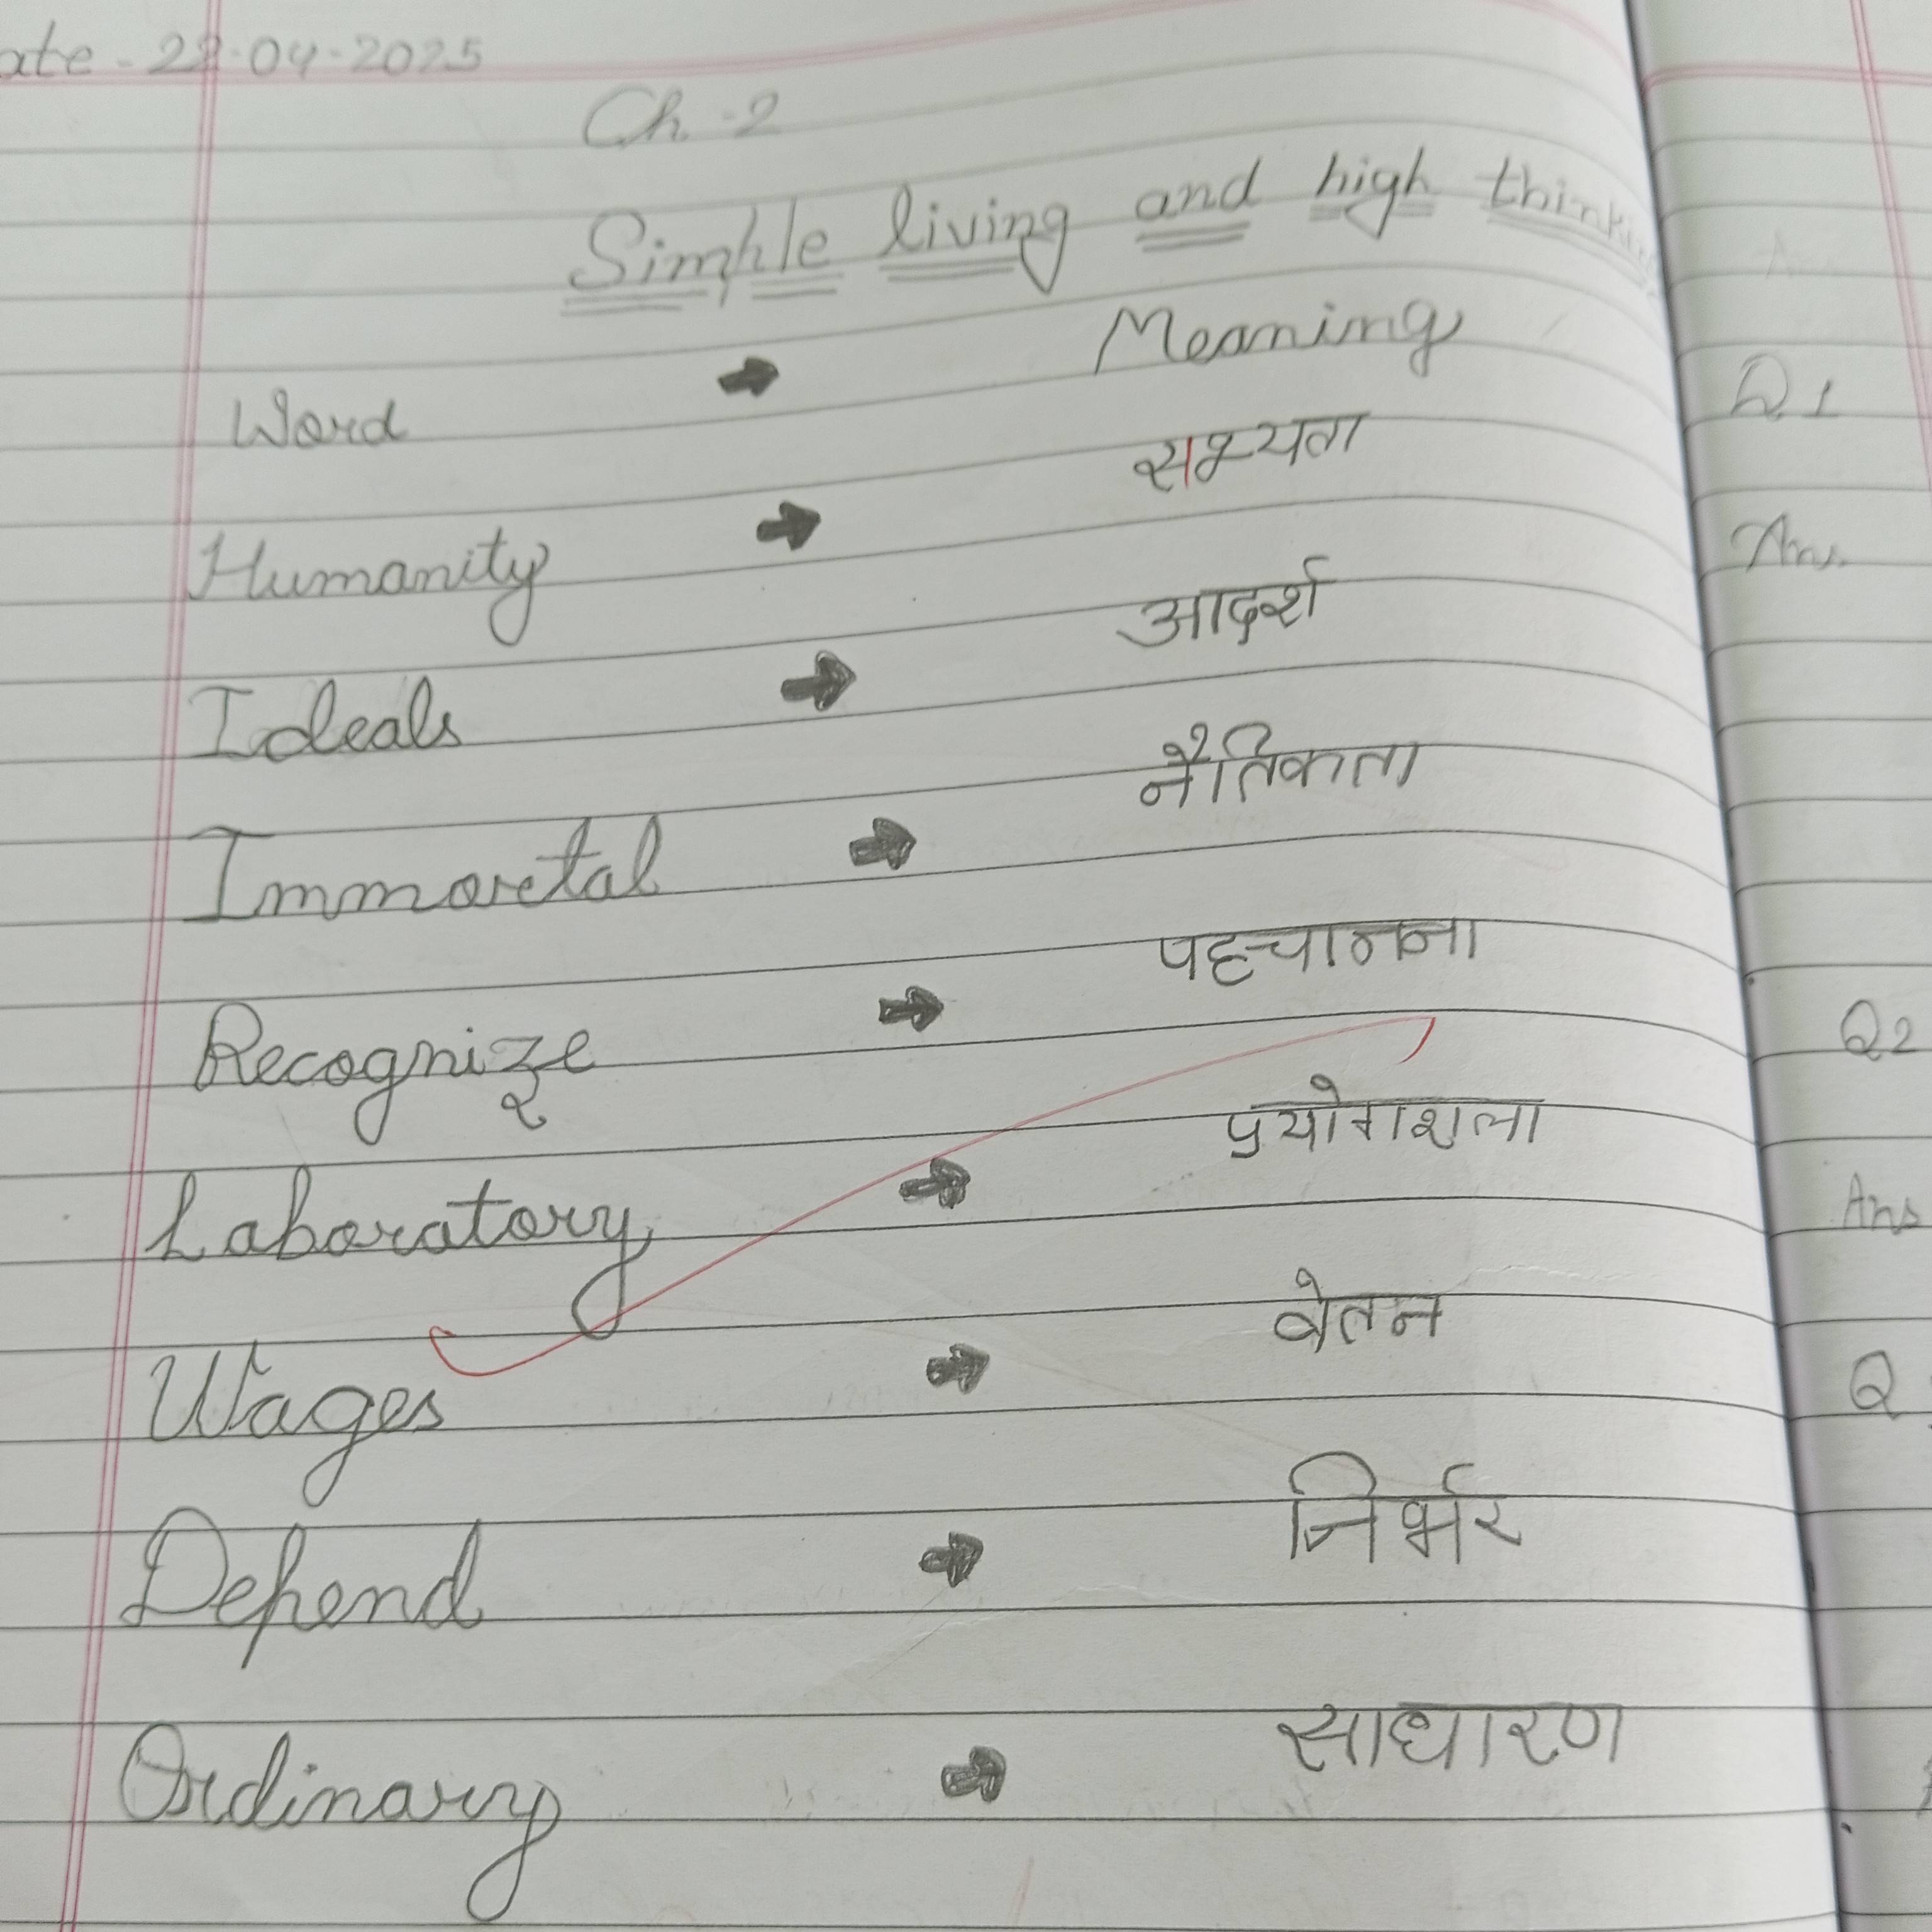 ate - 22-04-2025
Ch-2
Simple living and high thinking
Word → Meaning
Humanity → सभ्यता
Ideals → आदर्श
Immortal → नैतिकता
Recognize → पहचानना
Laboratory → प्रयोगशला
Wages → वेतन
Depend → निर्भर
Ordinary → साधारण
Q.1
Ans.
Q2
Ans
Q